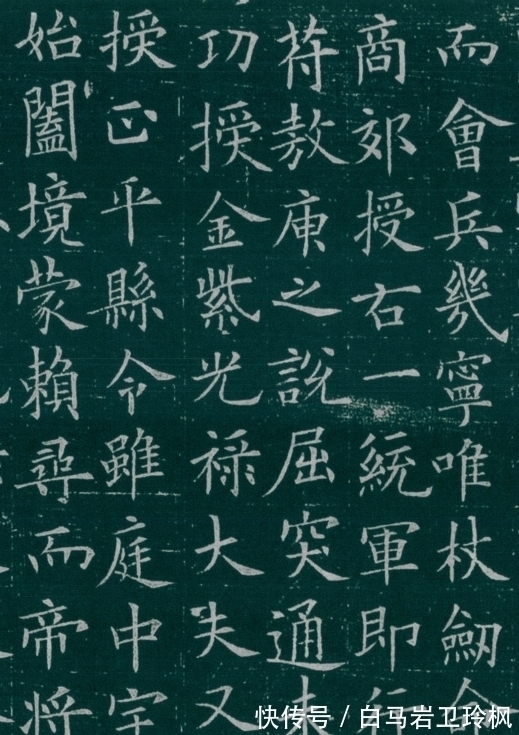 而會兵幾寧唯杖劒
商郊授右一統軍即行
苻敖庾之說屈突通
功授金紫光祿大夫又
授正平縣令雖庭中宇
始闔境蒙賴尋而帝將
快传号 / 白马岩卫玲枫